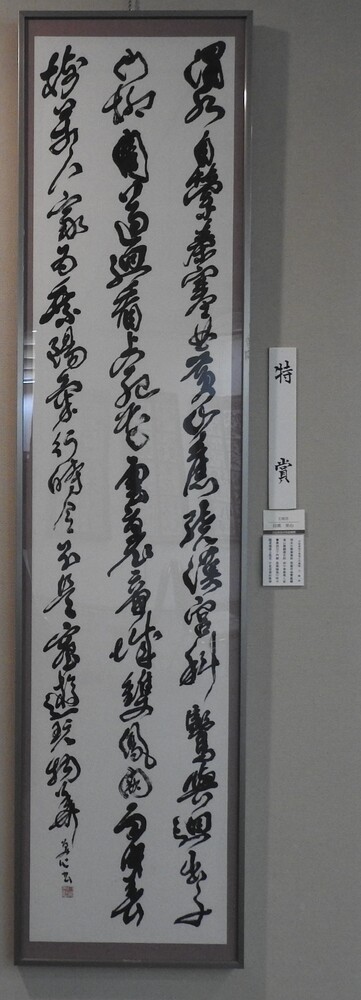 渭水自縈秦塞曲黄山舊繞漢宮斜鑾輿迥出千
門柳閣道迴看上苑花雲裏帝城雙鳳闕雨中春
樹萬人家為乗陽氣行時令不是宸遊玩物華
特賞